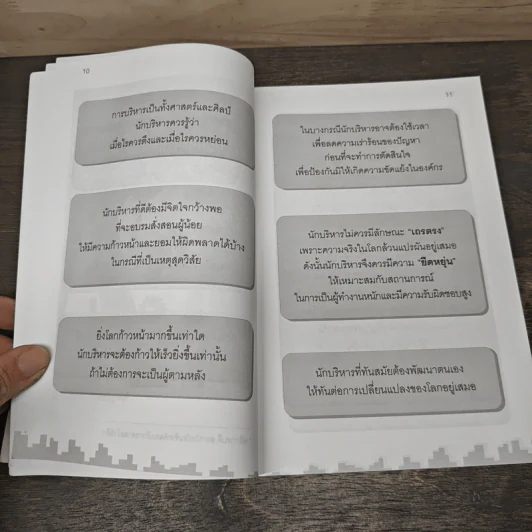 10
การบริหารเป็นทั้งศาสตร์และศิลป์
นักบริหารควรรู้ว่า
เมื่อไรควรตึงและเมื่อไรควรหย่อน
นักบริหารที่ดีต้องมีจิตใจกว้างพอ
ที่จะอบรมสั่งสอนผู้น้อย
ให้มีความก้าวหน้าและยอมให้ผิดพลาดได้บ้าง
ในกรณีที่เป็นเหตุสุดวิสัย
ยิ่งโลกก้าวหน้ามากขึ้นเท่าใด
นักบริหารจะต้องก้าวให้เร็วยิ่งขึ้นเท่านั้น
ถ้าไม่ต้องการจะเป็นผู้ตามหลัง
11
ในบางกรณีนักบริหารอาจต้องใช้เวลา
เพื่อลดความเร่าร้อนของปัญหา
ก่อนที่จะทำการตัดสินใจ
เพื่อป้องกันมิให้เกิดความขัดแย้งในองค์กร
นักบริหารไม่ควรมีลักษณะ "เถรตรง"
เพราะความจริงในโลกล้วนแปรผันอยู่เสมอ
ดังนั้นนักบริหารจึงควรมีความ "ยืดหยุ่น"
ให้เหมาะสมกับสถานการณ์
ในการเป็นผู้ทำงานหนักและมีความรับผิดชอบสูง
นักบริหารที่ทันสมัยต้องพัฒนาตนเอง
ให้ทันต่อการเปลี่ยนแปลงของโลกอยู่เสมอ